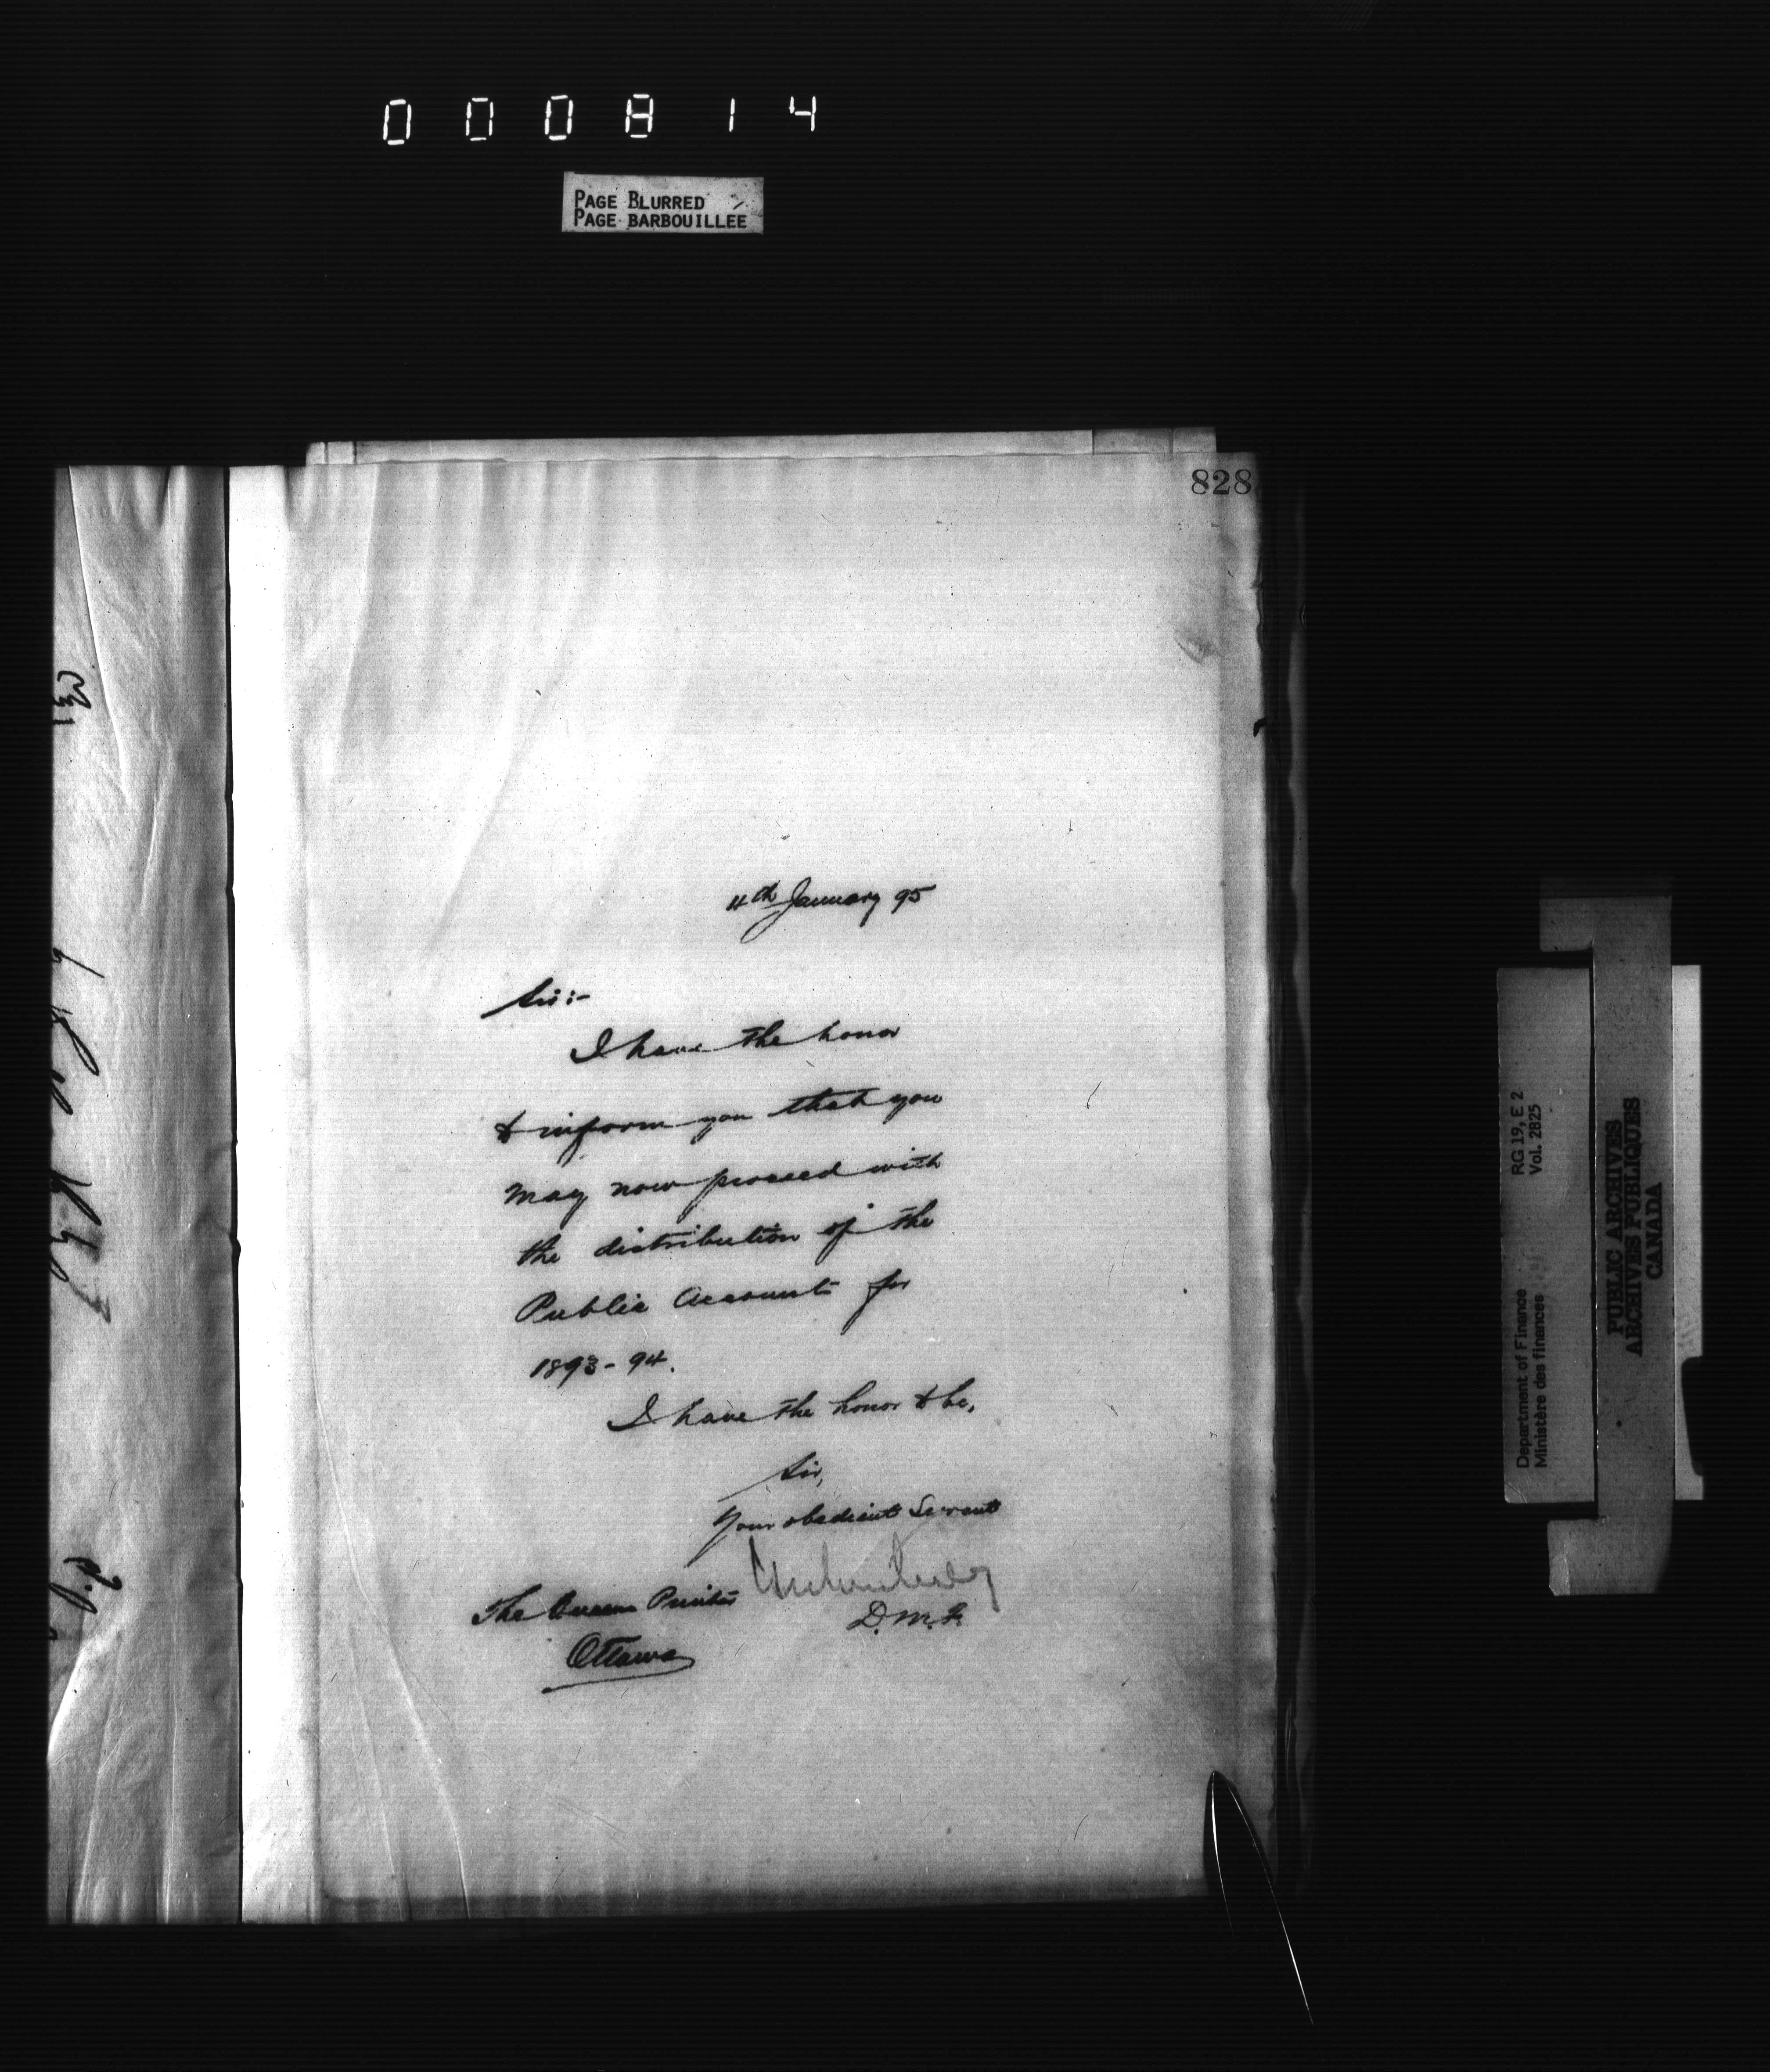 000814
PAGE BLURRED
PAGE BARBOUILLÉE
828
4th January 95
Sir:-
I have the honor
to inform you that you
may now proceed with
the distribution of the
Public Accounts for
1893-94.
I have the honor to be,
Sir,
Your obedient Servant
D.M.F.
The Queens Printer
Ottawa
RG 19, E 2
Vol. 2825
Department of Finance
Ministère des finances
PUBLIC ARCHIVES
ARCHIVES PUBLIQUES
CANADA